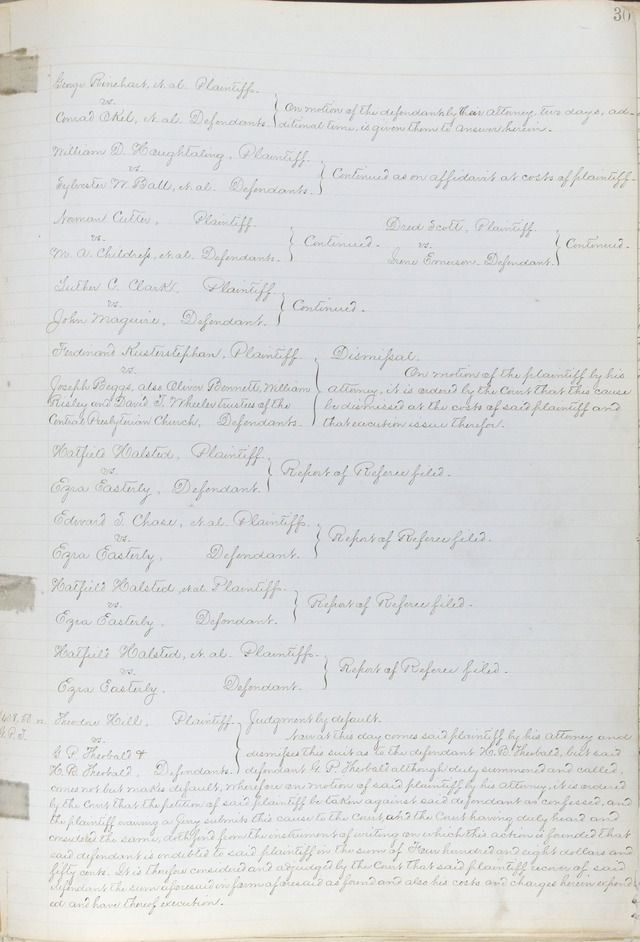 30
George Rinehart, et al. Plaintiffs.
vs.
Conrad Okel, et al. Defendants.
On motion of the defendants by their attorney, two days, ad-
ditional time, is given them to answer herein.
William D. Houghtaling, Plaintiff.
vs.
Sylvester W. Ball, et al. Defendants.
Continued as on affidavit at costs of plaintiff.
Norman Cutter, Plaintiff.
vs.
M. A. Childress, et al. Defendants.
Continued.
Dred Scott, Plaintiff.
vs.
Irene Emerson. Defendant.
Continued.
Luther C. Clark, Plaintiff
vs.
John Maguire, Defendant.
Continued.
Ferdinand Kusterstephan, Plaintiff.
vs.
Joseph Beggs, also Oliver Bennett, William
Risley and David T. Wheeler trustees of the
Central Presbyterian Church, Defendants.
Dismissal.
On motion of the plaintiff by his
attorney, it is ordered by the Court that this cause
be dismissed at the costs of said plaintiff and
that execution issue therefor.
Hatfield Halsted, Plaintiff.
vs.
Ezra Easterly, Defendant.
Report of Referee filed.
Edward T. Chase, et al. Plaintiffs.
vs.
Ezra Easterly, Defendant.
Report of Referee filed.
Hatfield Halsted, et al Plaintiffs.
vs.
Ezra Easterly. Defendant.
Report of Referee filed.
Hatfield Halsted, et al. Plaintiffs.
vs.
Ezra Easterly. Defendant.
Report of Referee filed.
408.50
G.P.T.
Theodore Hill, Plaintiff
vs.
G. P. Theobald &
H. B. Theobald, Defendants.
Judgment by default.
Now at this day comes said plaintiff by his attorney and
dismisses this suit as to the defendant H. B. Theobald, but said
defendant G. P. Theobald although duly summoned and called,
comes not but makes default, wherefore on motion of said plaintiff by his attorney, it is ordered
by the Court that the petition of said plaintiff be taken against said defendant as confessed, and
the plaintiff waiving a Jury submits this cause to the Court, and the Court having duly heard and
considered the same, doth find from the instrument of writing on which this action is founded that
said defendant is indebted to said plaintiff in the sum of Four hundred and eight dollars and
fifty cents. It is therefore considered and adjudged by the Court that said plaintiff recover of said
defendant the sum aforesaid in form aforesaid as found and also his costs and charges herein expend
ed and have thereof execution.